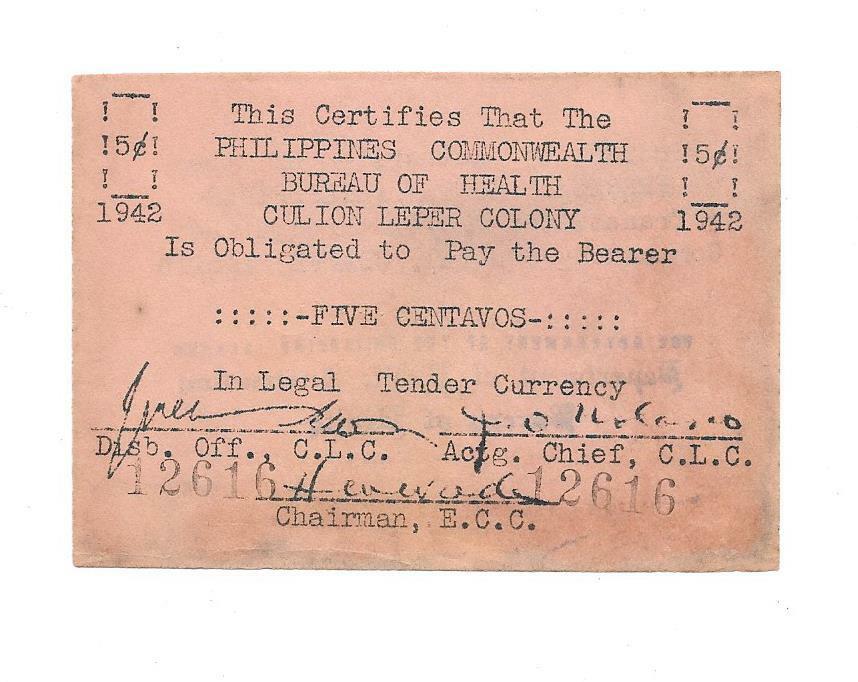 This Certifies That The
!5¢! PHILIPPINES COMMONWEALTH !5¢!
BUREAU OF HEALTH
1942 CULION LEPER COLONY 1942
Is Obligated to Pay the Bearer
:::::-FIVE CENTAVOS-:::::
In Legal Tender Currency
Disb. Off., C.L.C. Actg. Chief, C.L.C.
12616 12616
Chairman, E.C.C.